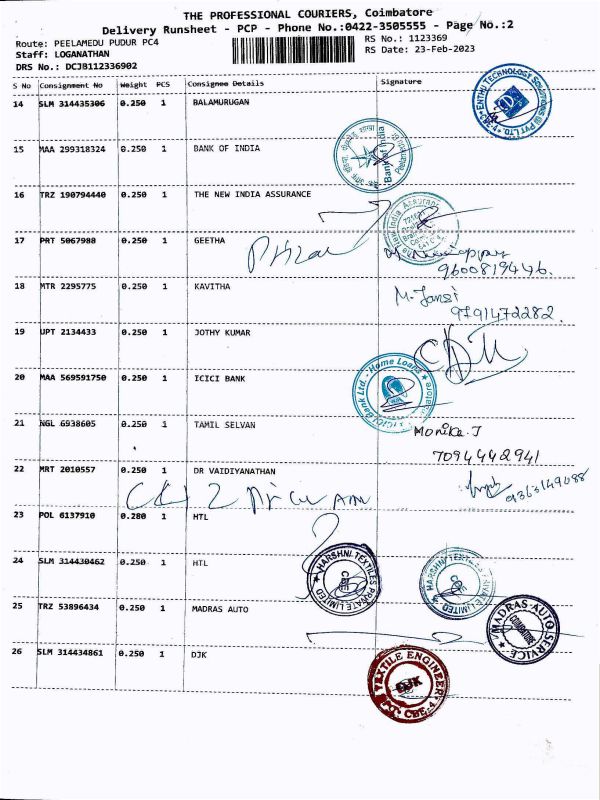 THE PROFESSIONAL COURIERS, Coimbatore
Delivery Runsheet - PCP - Phone No.:0422-3505555 - Page No.:2
Route: PEELAMEDU PUDUR PC4
RS No.: 1123369
Staff: LOGANATHAN
RS Date: 23-Feb-2023
DRS No.: DCJB112336902
S No Consignment No Weight PCS Consignee Details Signature
14 SLM 314435306 0.250 1 BALAMURUGAN
ENTHU TECHNOLOGY SOLUTIONS PVT LTD.
15 MAA 299318324 0.250 1 BANK OF INDIA
Bank of India
Peelamedu
16 TRZ 190794440 0.250 1 THE NEW INDIA ASSURANCE
The New India Assurance
17 PRT 5067988 0.250 1 GEETHA
9600819446.
18 MTR 2295775 0.250 1 KAVITHA
M. Jansi
9791472282.
19 UPT 2134433 0.250 1 JOTHY KUMAR
20 MAA 569591750 0.250 1 ICICI BANK
ICICI Bank Ltd. - Home Loans
21 NGL 6938605 0.250 1 TAMIL SELVAN
Monika.J
7094442941
22 MRT 2010557 0.250 1 DR VAIDIYANATHAN
9363149088
23 POL 6137910 0.280 1 HTL
24 SLM 314430462 0.250 1 HTL
HARSHNI TEXTILES PRIVATE LIMITED
CBE
HARSHNI TEXTILES PRIVATE LIMITED
25 TRZ 53896434 0.250 1 MADRAS AUTO
MADRAS AUTO SERVICE
COIMBATORE
26 SLM 314434861 0.250 1 DJK
TEXTILE ENGINEER
DJK
CBE-4